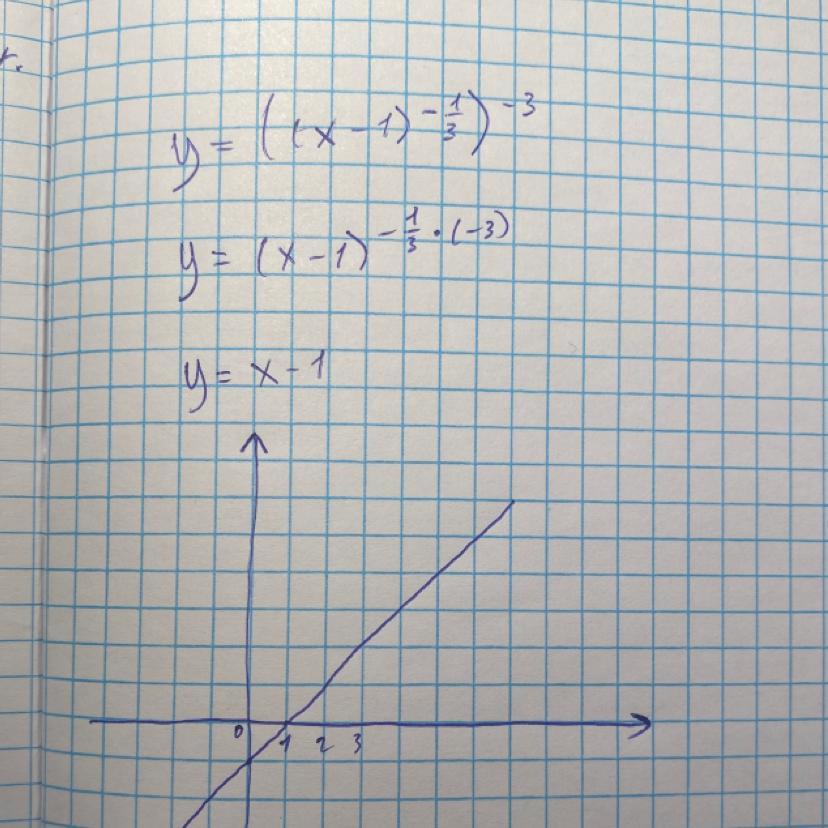 y = ((x - 1)^{-\frac{1}{3}})^{-3}
y = (x - 1)^{-\frac{1}{3} \cdot (-3)}
y = x - 1
0 1 2 3